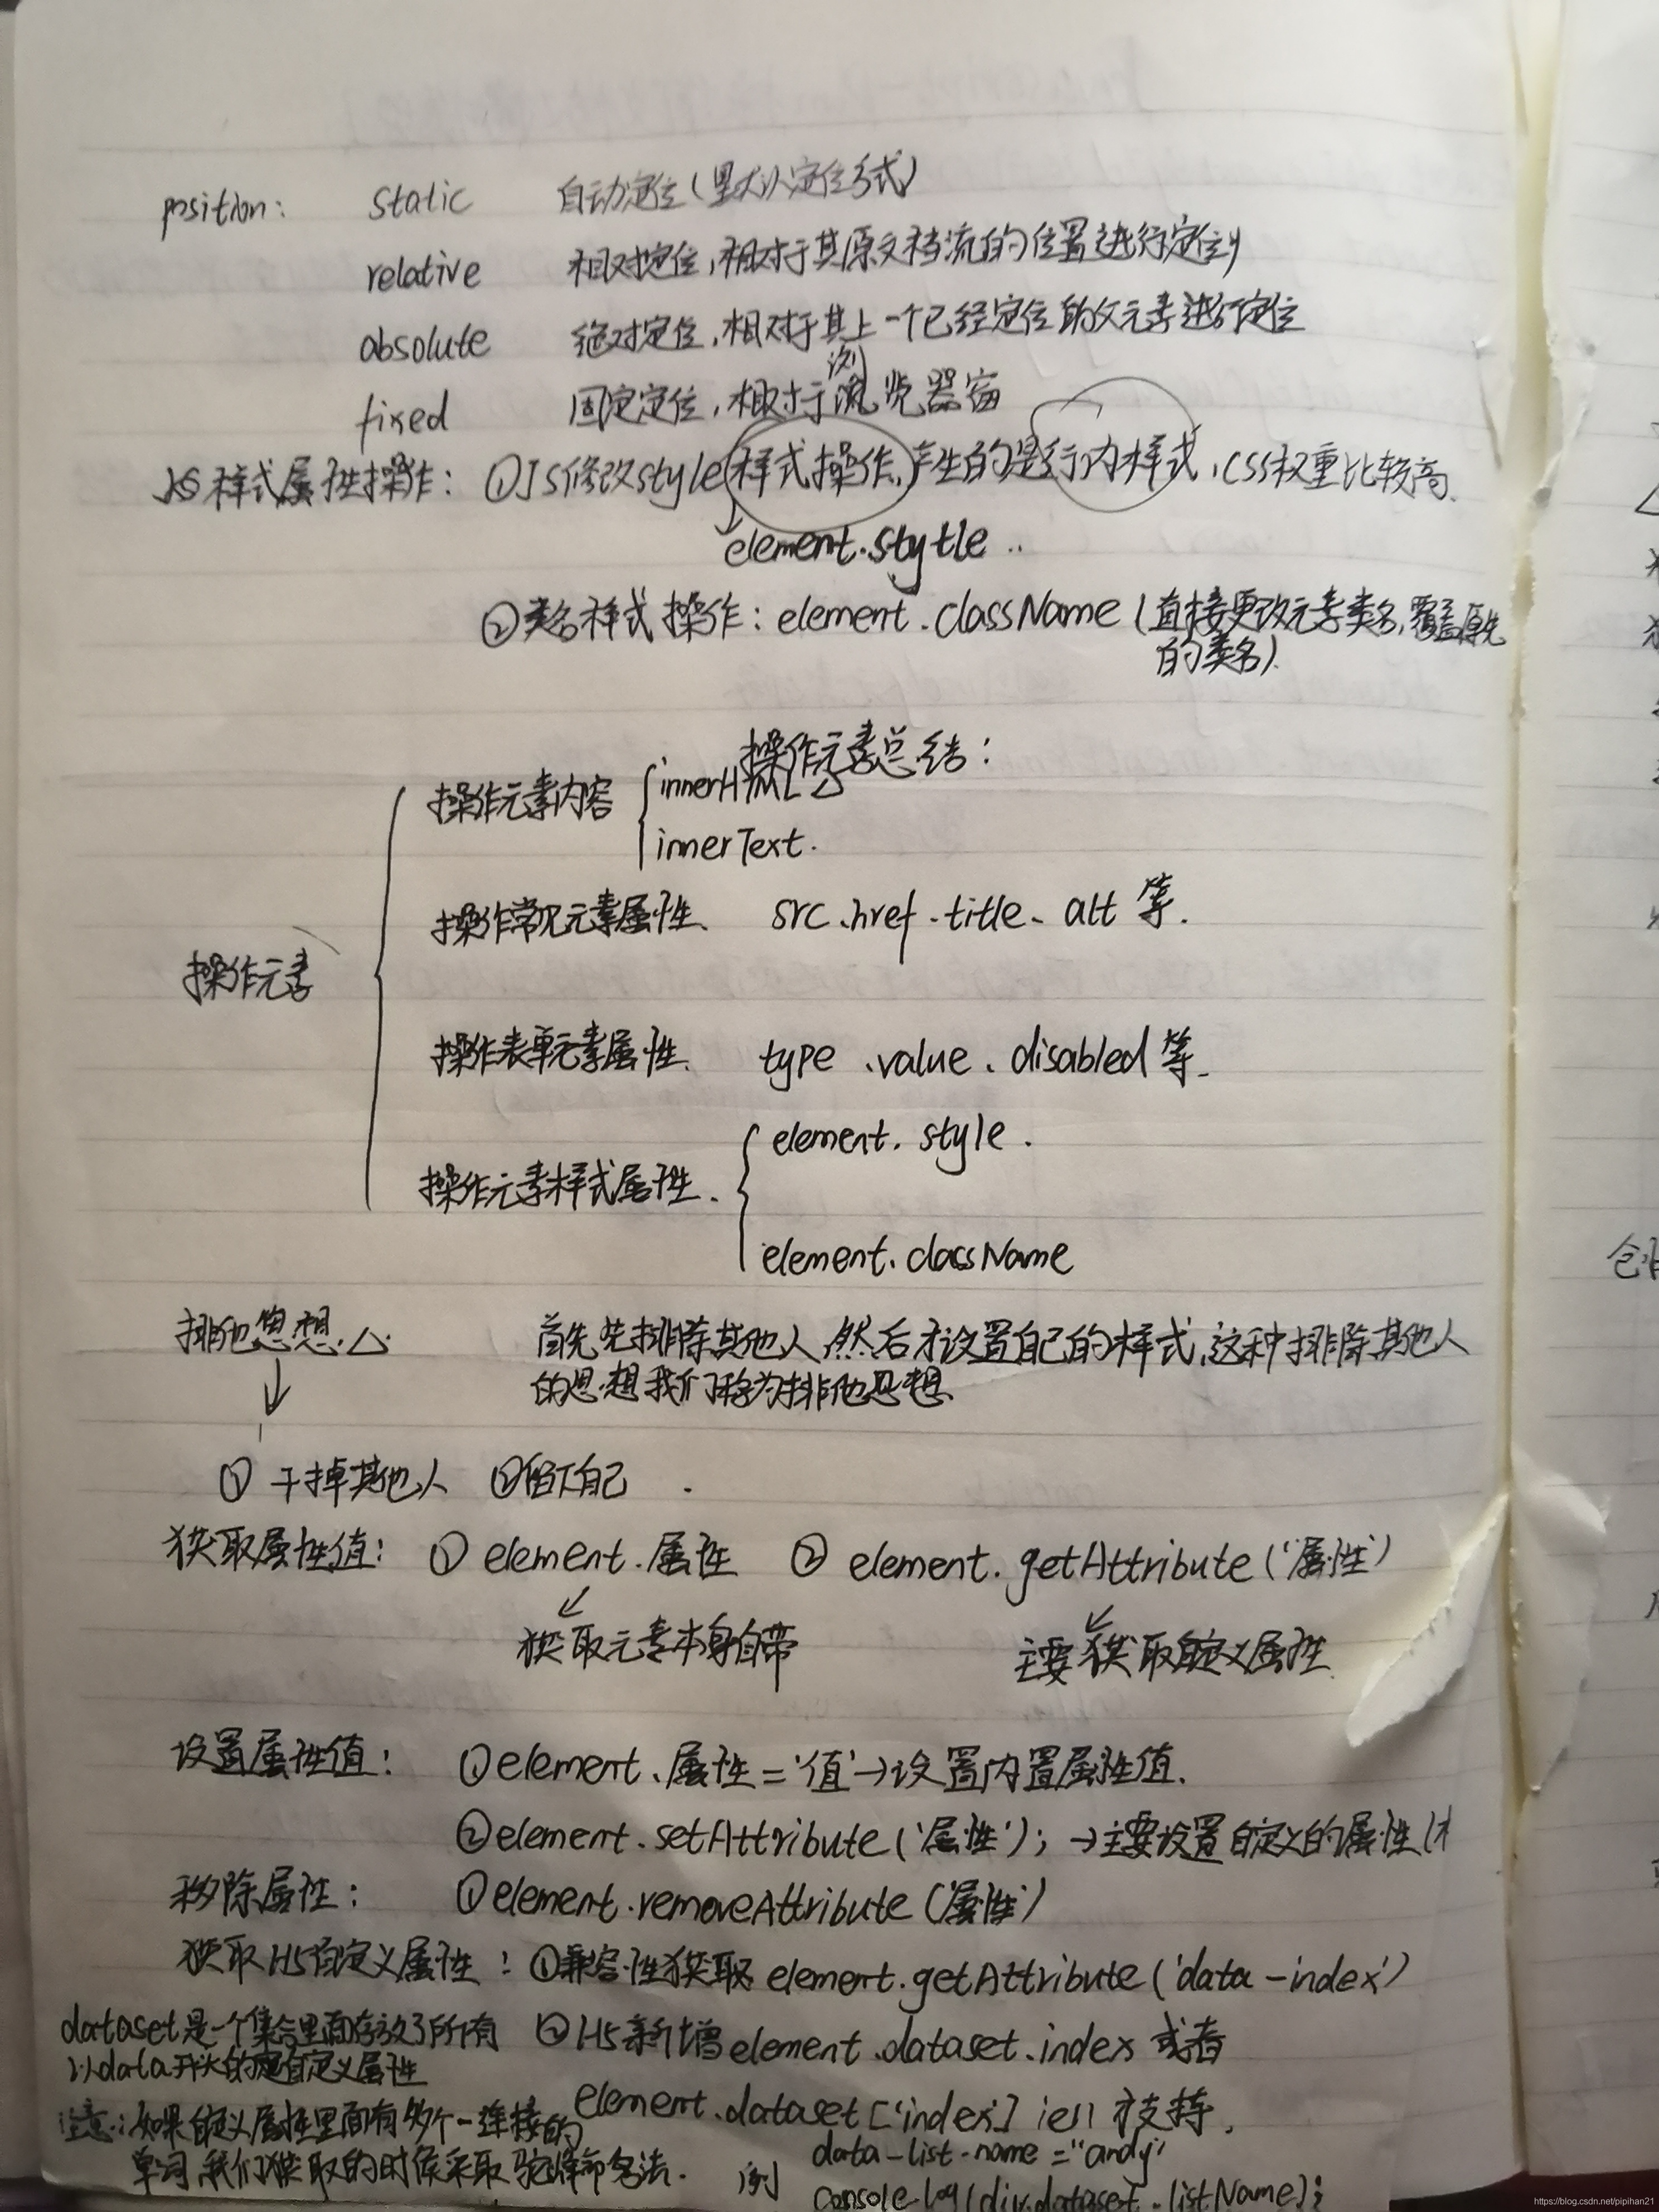 position: static 自动定位(默认定位方式)
relative 相对定位,相对于其原文档流的位置进行定位
absolute 绝对定位,相对于其上一个已经定位的父元素进行定位
浏
fixed 固定定位,相对于浏览器窗
JS样式属性操作: ①JS修改style样式操作,产生的是行内样式,CSS权重比较高.
element.stytle ..
②类名样式操作: element.className (直接更改元素类名,覆盖原先
的类名).
操作元素总结:
操作元素内容 innerHTML △
innerText.
操作常见元素属性、 src、href、title、alt 等.
操作元素
操作表单元素属性. type、value、disabled等.
element. style.
操作元素样式属性.
element.className
排他思想.△. 首先先排除其他人,然后才设置自己的样式,这种排除其他人
的思想我们称为排他思想.
① 干掉其他人 ②留下自己.
获取属性值: ① element.属性 ② element.getAttribute('属性')
获取元素本身自带 主要获取自定义属性.
设置属性值: ①element.属性='值'→设置内置属性值.
②element.setAttribute('属性'); →主要设置自定义的属性(
移除属性: ①element.removeAttribute('属性')
获取H5自定义属性: ①兼容性获取 element.getAttribute('data-index')
dataset是一个集合里面存放了所有 ②H5新增 element.dataset.index 或者
以data开头的自定义属性
element.dataset['index'] ie11 才支持.
注意:如果自定义属性里面有多个-连接的
单词,我们获取的时候采取驼峰命名法. 例 data-list-name="andy"
console.log(div.dataset.listName);
https://blog.csdn.net/pipihan21